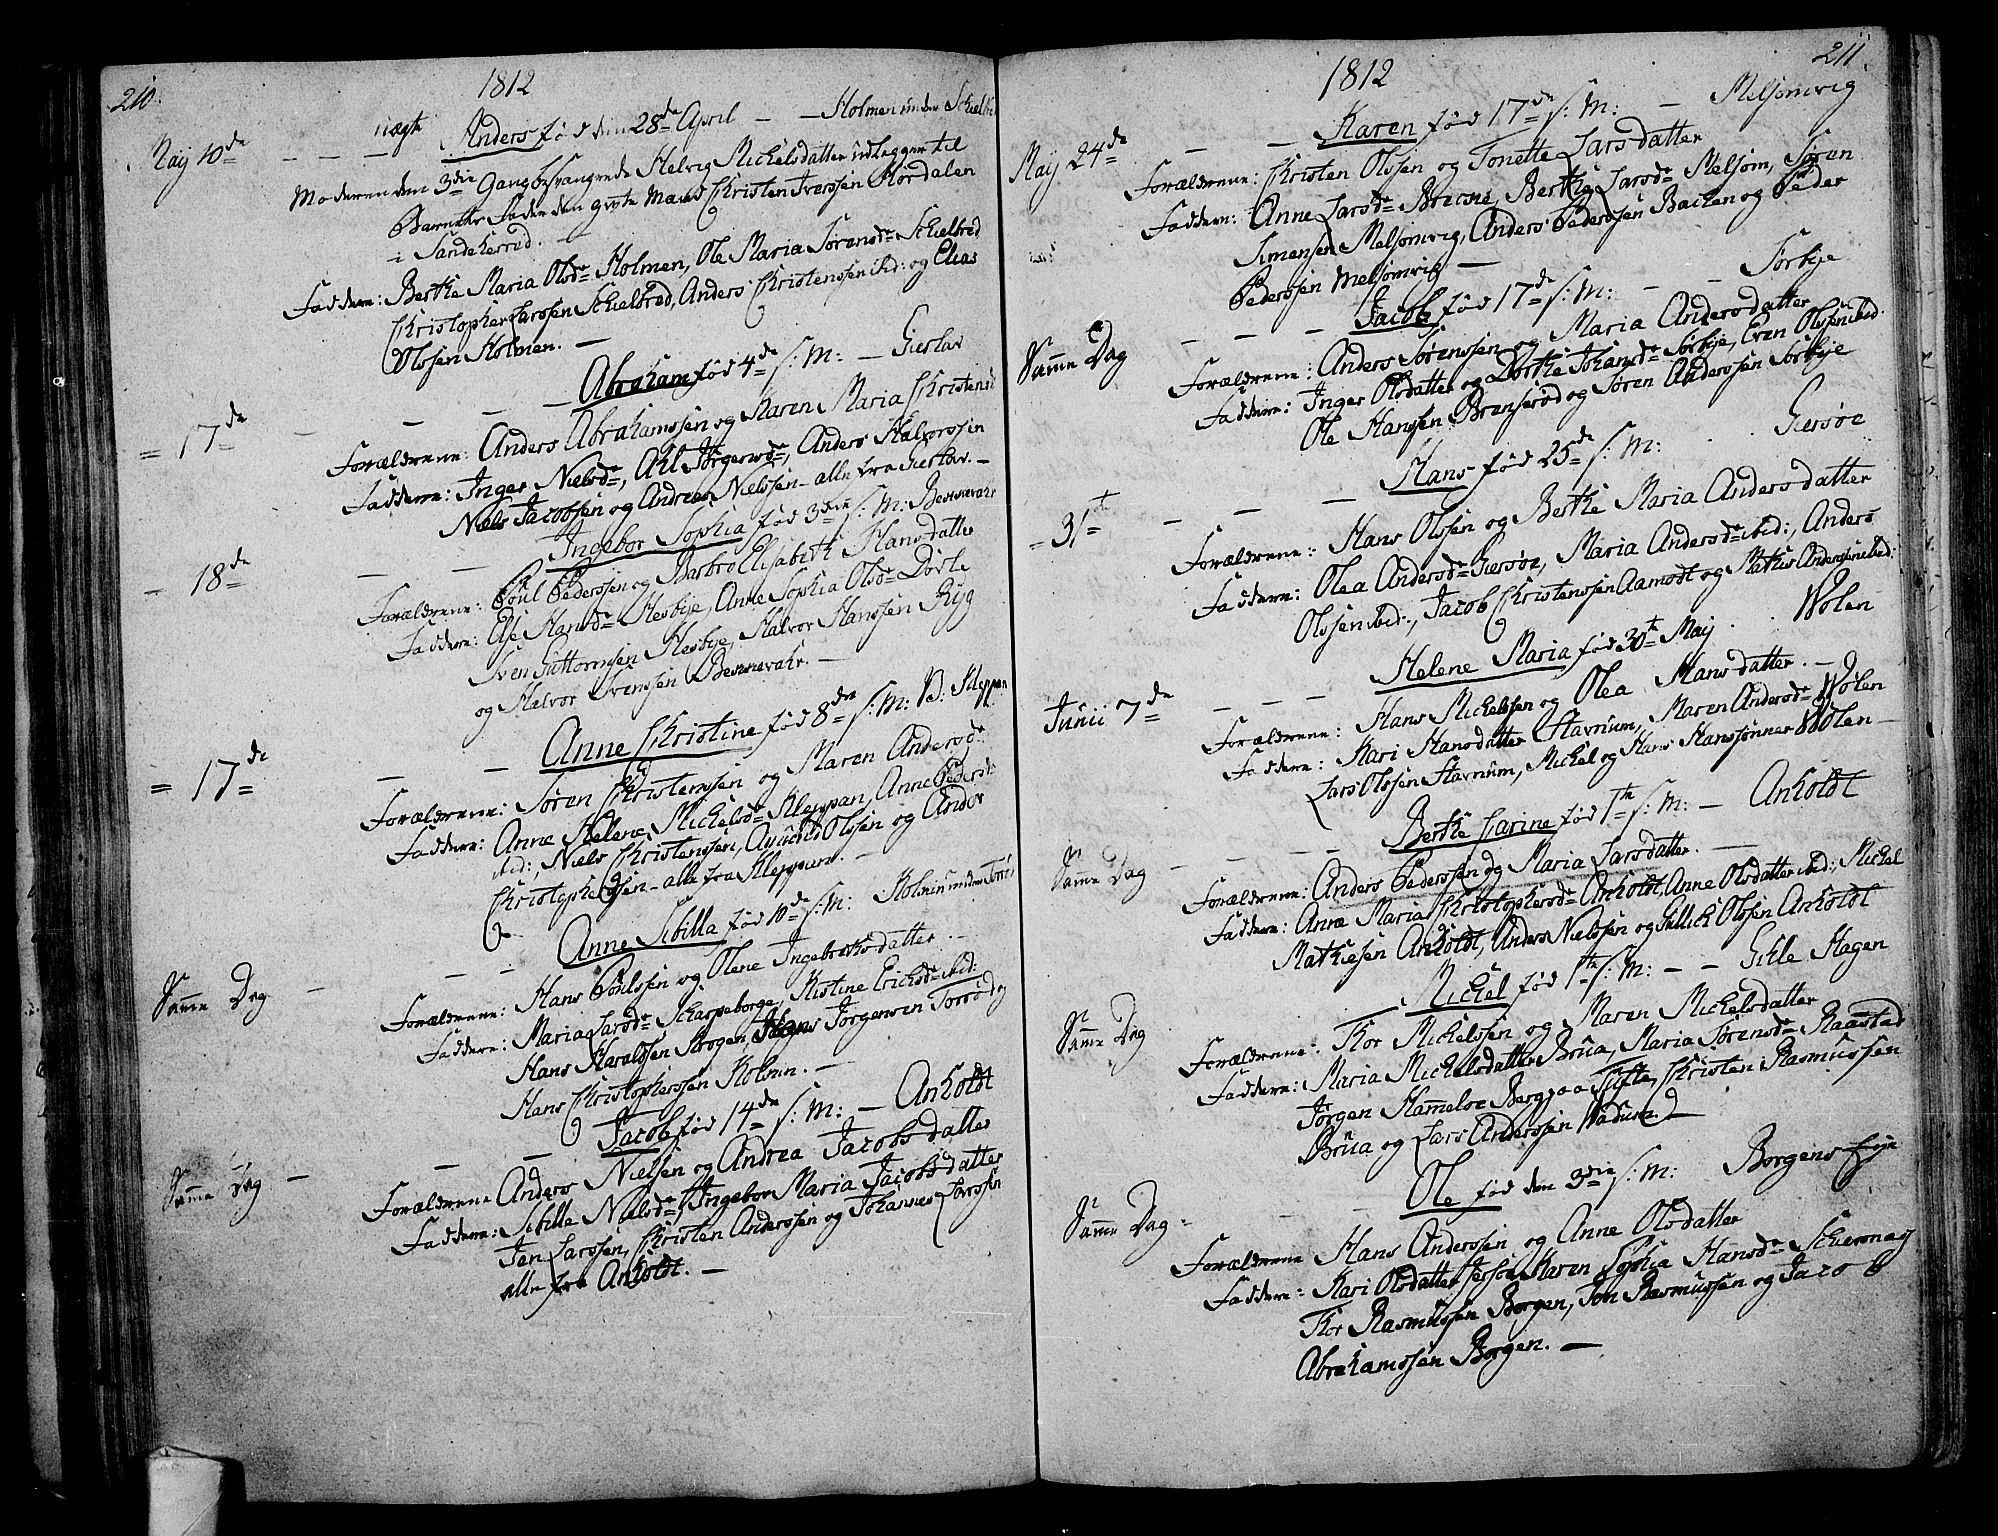 210.
1812
May 10de - - - uægte Anders fød den 28de April - - Holmen under Schielbred
Moderen den 3die Gang besvangrede Helvig Michelsdatter udlegger til
Barnefader den gifte Mand Christen Iverssen Nordalen
i Sandeherred. -
Faddere: Berthe Maria Olsdr Holmen, Ole Maria Sørensdr Schielbred
Christopher Larssen Schielbred, Anders Christenssen ibid: og Elias
Olssen Holmen. -
= 17de - - - Abraham fød 4de s: M: - Gierstav
Forældrene: Anders Abrahamssen og Maren Maria Christensdr
Faddere: Inger Nielsdr, Ahl Jørgensdr, Anders Halvorssen
Niels Jacobsen og Andreas Nielssen - alle fra Gierstav. -
- 18de - - Ingebor Sophia fød 3die s: M: Bessevahr
Forældrene: Poul Pederssen og Barbro Elisabeth Hansdatter
Faddere: Else Hansdr Hesbye, Anne Sophia Olsdr Dørle
Sven Guttormsen Hesbye, Halvor Hanssen Ryg
og Halvor Svenssen Bessevahr. -
= 17de - - Anne Christine fød 8de s: M: N: Kleppan
Forældrene: Søren Christenssen og Maren Andersdr
Faddere: Anne Helene Michelsdr Kleppan, Anne Pedersdr
ibid:, Niels Christenssen, Amund Olssen og Anders
Christophersen - alle fra Kleppan. -
Samme Dag - - - Anne Sibilla fød 10de s: M: Holmen under Torrød
Forældrene: Hans Poulssen og Olene Ingebretsdatter. -
Faddere: Maria Larsdr Scharpeborge, Kistine Erichsdr ibid:
Hans Haraldsen Krogen, Hans Jørgensen Torrød og
Hans Christopherssen Holmen. -
Samme Dag - - - Jacob fød 14de s: M: - Anholdt
Forældrene Anders Nielsen og Andrea Jacobsdatter
Faddere: Sibille Nielsdr, Ingebor Maria Jacobsdatter
Jen Larssen, Christen Anderssen og Johannes Larssen
alle fra Anholdt. -
211.
1812
May 24de - - Karen fød 17de s: M: - Melsomvig
Forældrene: Christen Olssen og Tonette Larsdatter
Faddere: Anne Larsdr Brecsne, Berthe Larsdr Melsom, Søren
Simensen Melsomvig, Anders Pederssen Bachen og Peder
Pederssen Melsomvig -
Samme Dag - - - Jacob fød 17de s: M: - - Sørbye
Forældrene: Anders Sørenssen og Maria Andersdatter
Faddere: Inger Olsdatter og Dorthe Johansdr Sørbye, Even Olssen ibid.
Ole Hanssen Brunserød og Søren Anderssen Sørbye
- 31te - - - Hans fød 25de s: M: Giersøe
Forældrene: Hans Olssen og Berthe Maria Andersdatter
Faddere: Olea Andersdr Giersøe, Maria Andersdr ibid:, Anders
Olssen ibid:, Jacob Christenssen Aamodt og Mathis Anderssen ibid:
Junii 7de - - - Helene Maria fød 30te May. . Wølen
Forældrene: Hans Michelssen og Olea Mansdatter. -
Faddere: Kari Hansdatter Stavnum, Maren Andersdr Wølen
Lars Olssen Stavnum, Michel og Hans Hanssønner Wølen -
Samme Dag - - - - Berthe Carine fød 1te s: M: - Anholdt
Forældrene: Anders Pederssen og Maria Larsdatter. -
Faddere: Anne Maria Christophersdr Anholdt, Anne Olsdatter ibid:, Michel
Mathiesen Anholdt, Anders Nielssen og Gullich Olssen Anholdt
Samme Dag Michel fød 1te s: M: - - Gille Hagen
Forældrene: Thor Michelssen og Maren Michelsdatter
Faddere: Maria Michelsdatter Brua, Maria Sørensdr Raastad
Jørgen Hammeloe Berg paa Tufte, Christen Rasmussen
Brua og Lars Anderssen Wadum. -
Samme Dag - - - Ole fød den 3die s: M: Borgens Eye
Forældrene Hans Anderssen og Anne Olsdatter
Faddere: Kari Olsdatter Jersøe, Maren Sophia Hansdr Schiersnæs
Thor Rasmussen Borgen, Ton Rasmussen og Jacob
Abrahamssen Borgen. -